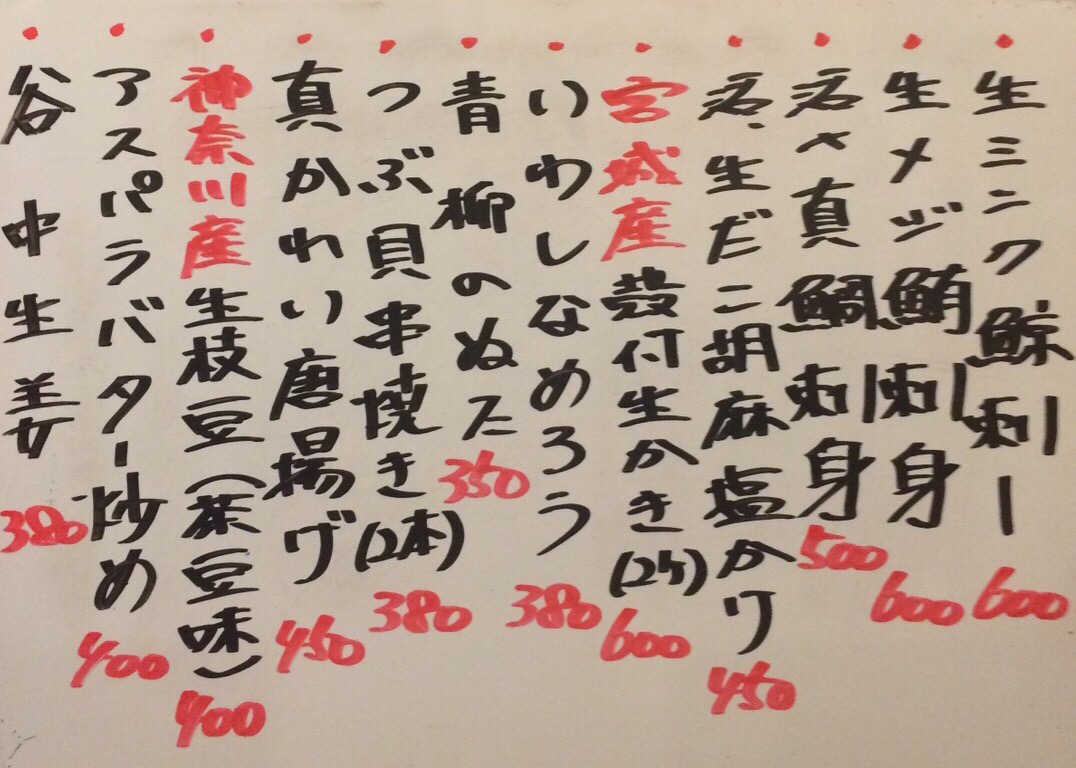 生ミンク鯨刺し 600
生メジ鮪刺身 600
活〆真鯛刺身 500
活、生だこ胡麻塩かけ 450
宮城産殻付生かき(2ケ) 600
いわしなめろう 380
青柳のぬた 350
つぶ貝串焼き(2本) 380
真かれい唐揚げ 450
神奈川産生枝豆(茶豆味) 400
アスパラバター炒め 400
谷中生姜 380